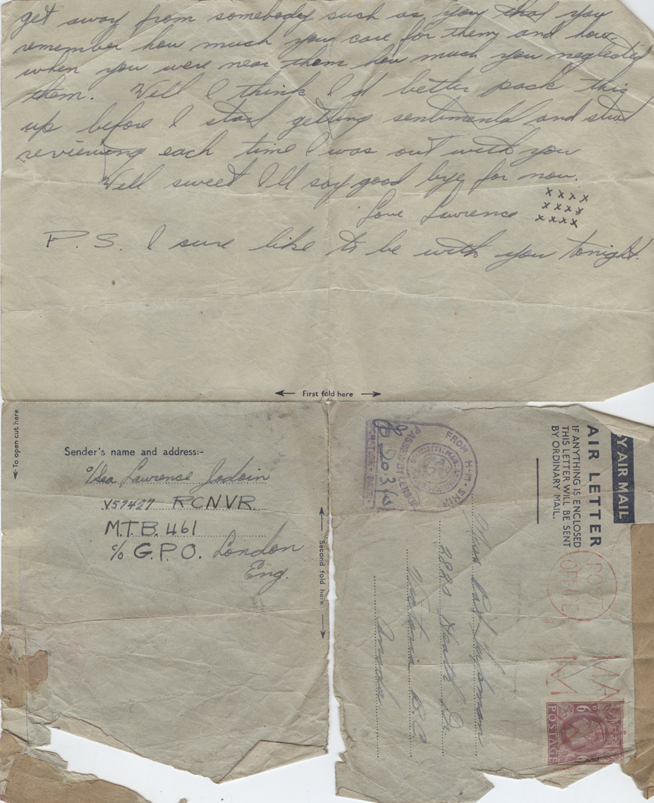 get away from somebody such as you that you
remember how much you care for them and how
when you were near them how much you neglected
them. Well I think I'd better pack this
up before I start getting sentimental and start
reviewing each time I was out with you
Well sweet I'll say good bye for now.
Love Lawrence
x x x x
x x x x
x x x x
P.S. I sure like to be with you tonight.
First fold here
To open cut here
Sender's name and address:-
Lawrence
V57427 RCNVR.
M.T.B. 461
c/o G.P.O. London
Eng.
Second fold here
BY AIR MAIL
AIR LETTER
IF ANYTHING IS ENCLOSED
THIS LETTER WILL BE SENT
BY ORDINARY MAIL.
FROM H.M. SHIP
Miss
Victoria B.C.
Canada
POSTAGE